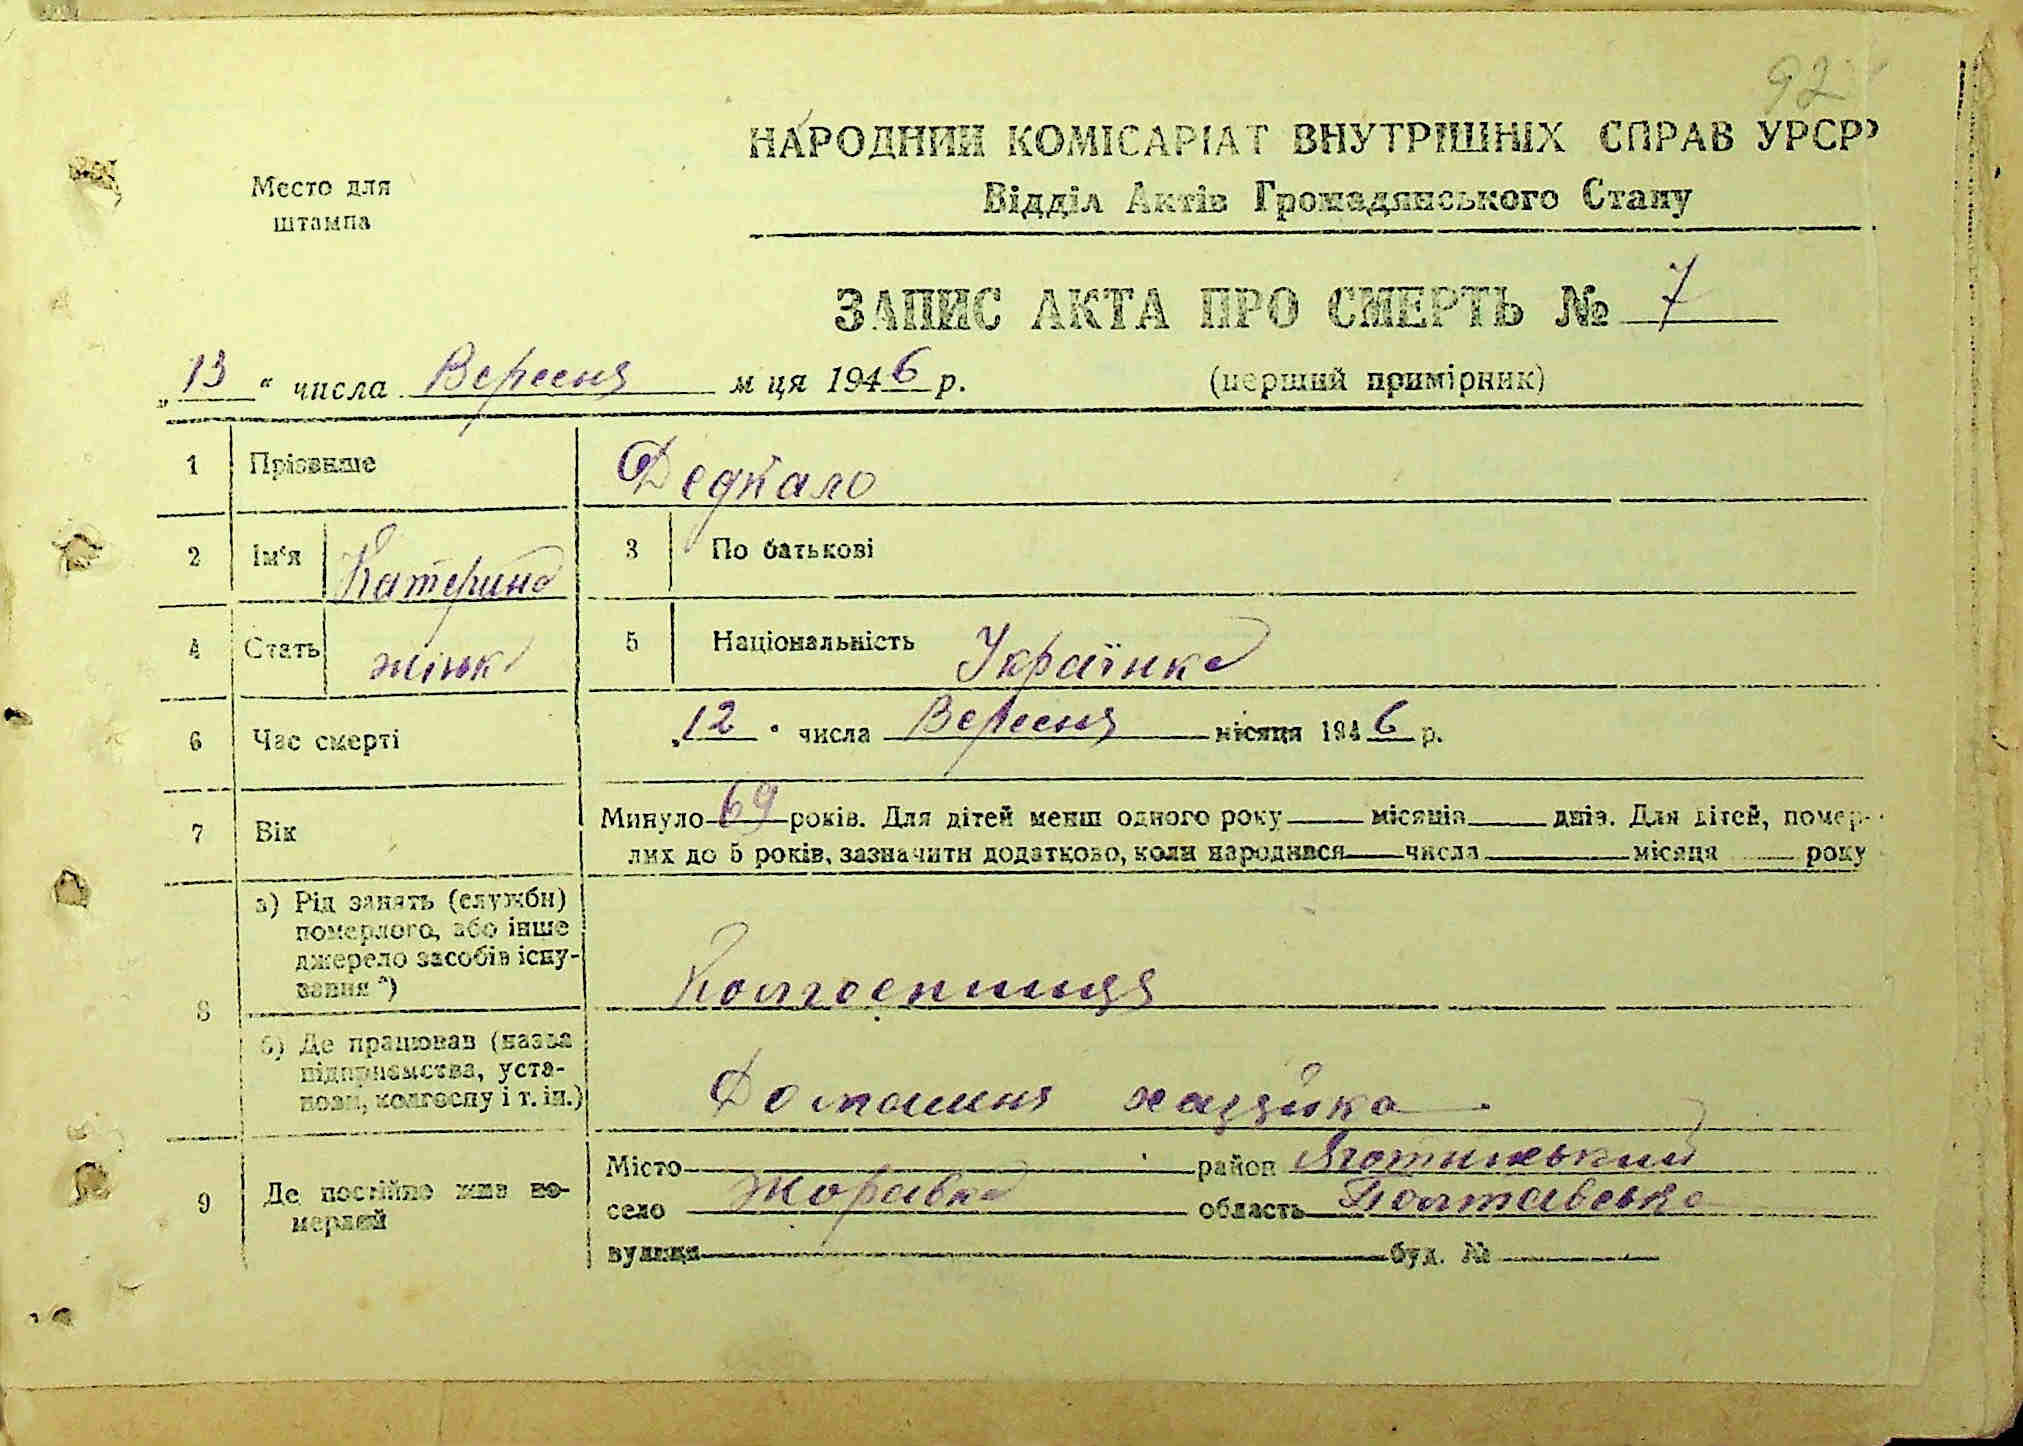 92
НАРОДНИЙ КОМІСАРІАТ ВНУТРІШНІХ СПРАВ УРСР
Место для
штампа
Відділ Актів Громадянського Стану
ЗАПИС АКТА ПРО СМЕРТЬ № 7
„13“ числа Вересня м ця 1946 р. (перший примірник)
1 Прізвище Дедкало
2 Ім‘я Катерина 3 По батькові
4 Стать жінка 5 Національність Українка
6 Час смерті „12“ числа Вересня місяця 1946 р.
7 Вік Минуло 69 років. Для дітей менш одного року місяців днів. Для дітей, помер-
лих до 5 років, зазначити додатково, коли народився числа місяця року
8 а) Рід занять (служби)
померлого, або інше
джерело засобів існу-
вання *) Колгоспниця
б) Де працював (назва
підприємства, уста-
нови, колгоспу і т. ін.) Домашня хазяйка
9 Де постійно жив по-
мерлий
Місто район Яготинський
село Жоравка область Полтавська
вулиця буд. №